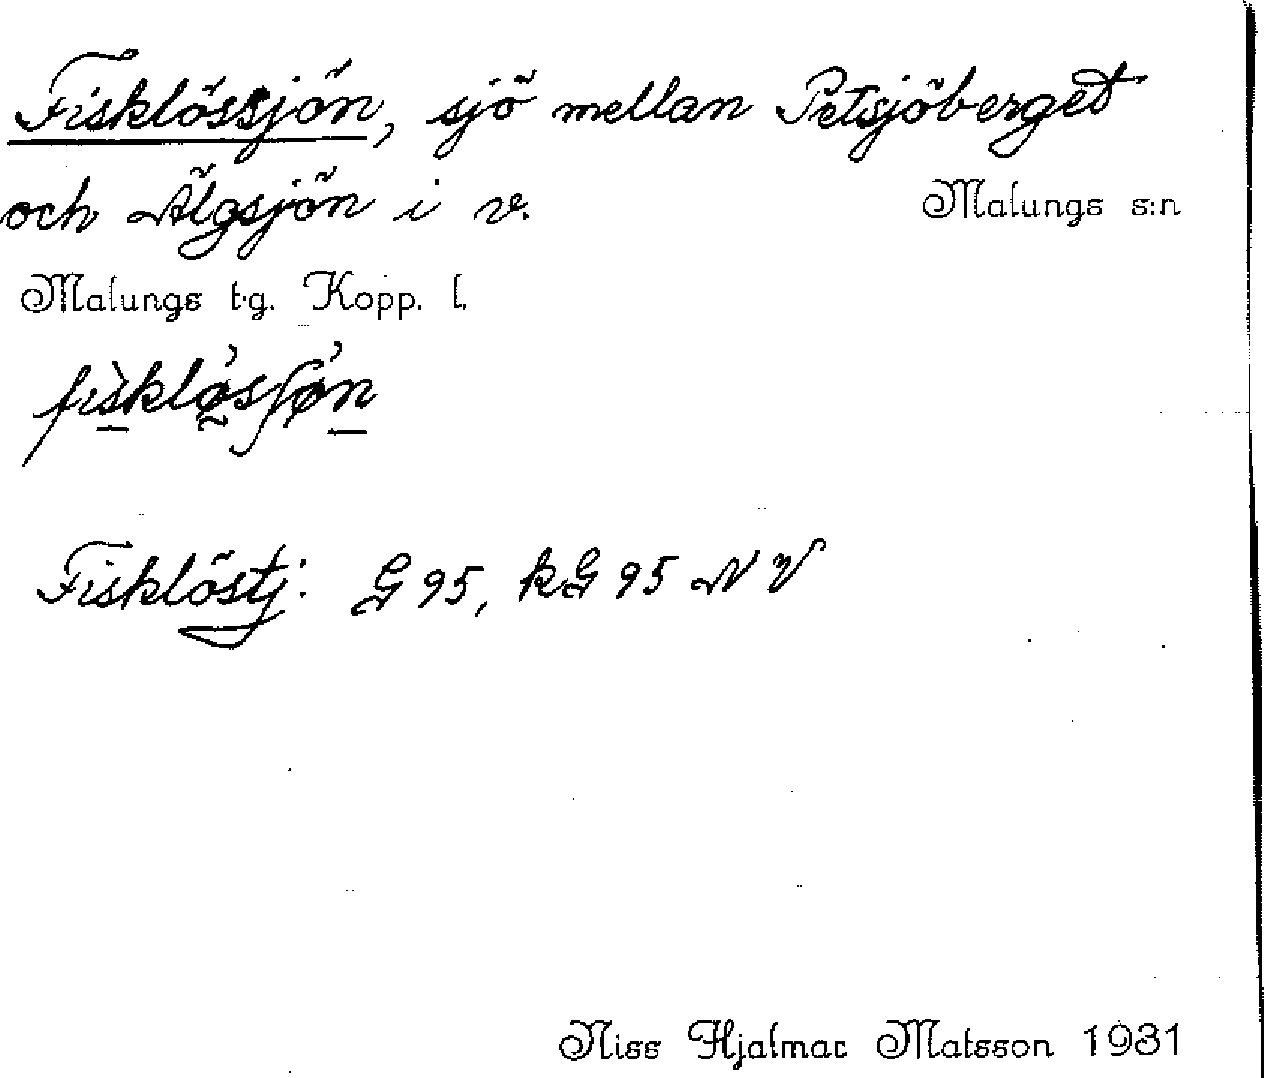 Fisklössjön, sjö mellan Petsjöberget
och Älgsjön i v. Malungs s:n
Malungs t.g. Kopp. l.
fìsklø̀sʃø̀n
Fisklöstj: G 95, kG 95 NV
Niss Hjalmar Matsson 1931